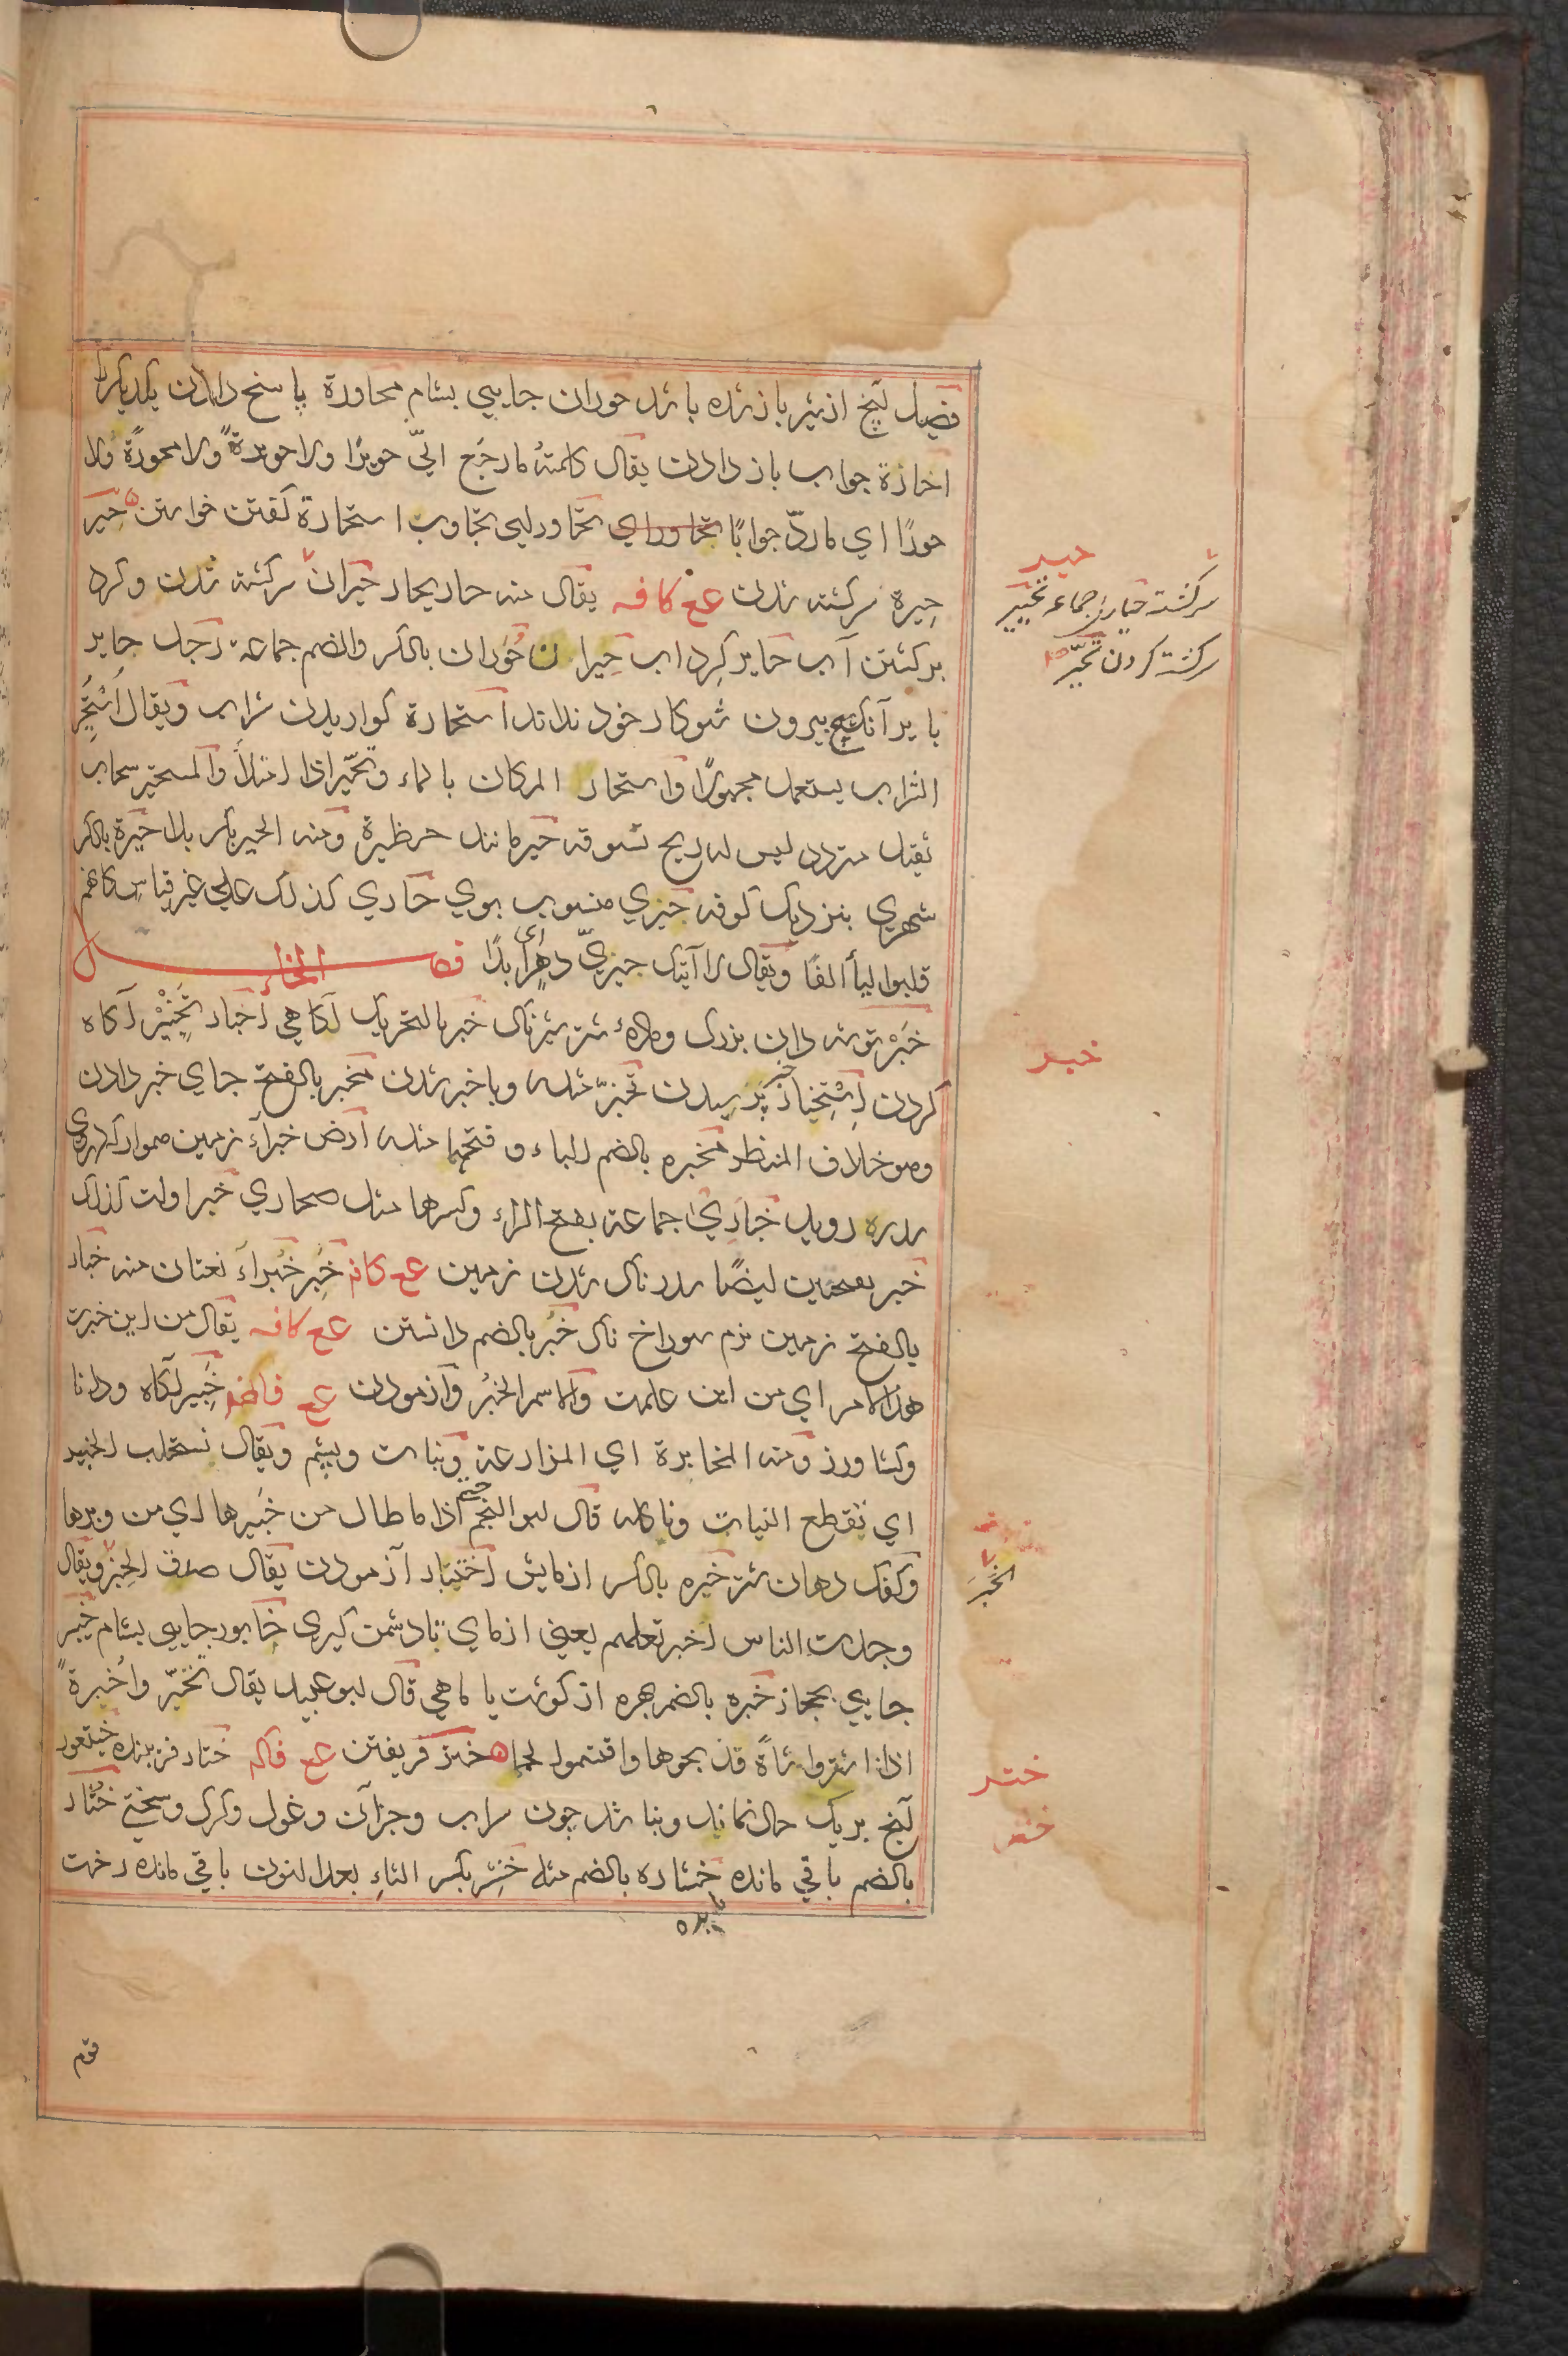 فصيل آنچ از شير باز شده باشد حوران جايي بشام محاورة پاسخ دادن يكديگررا
احازة جواب باز دادن يقال كلمته مارجع اليّ حويرًا ولا حويرةً ولا محورةً ولا
حورًا اي ماردّ جوابًا تحاور اي تجاوب استحارة گفتن خواستن حير
حيرة سرگشته شدن عع كافه يقال منه حار يحار حيران سرگشته شدن و گرد
برگشتن آب حاير گرداب حيران حوران بالكسر والضم جماعة رجل حاير
باير آنكه هيچ بيرون شو كار خود نداند استحارة گواريدن شراب ويقال استحير
الشراب يستعمل مجهورًا واستحار المكان بالماء وتحيّر اذا امتلأ والمستحير سحاب
ثقيل متردد ليس له ريح تسوقه حير مانند حظيرة ومنه الحير بكربلا حيرة بالكسر
شهري بنزديك كوفه حيري منسوب بوي حاري كذلك علي غير قياس كانهم
قلبوا اليأ الفًا ويقال لا آتيك حيريّ دهرٍ اي ابدًا فصل الخاء
خبر توشه دان بزرگ وماده شتر شيرناك خبر بالتحريك آگاهي اخبار تخبير آگاه
كردن استخبار خبر پرسيدن تخبّر مثله وباخبر شدن مخبر بالفتح جاي خبر دادن
وهو خلاف المنظر مخبره بالضم الباء وفتحها مثله ارض خبرآء زمين هموار كه دروي
سدره رويد خباري جماعة بفتح الراء وكسرها مثل صحاري خبراوات كذلك
خبر بفتحتين ايضًا سدرناك شدن زمين عع كافه خبر خبرآء نعتان منه خبار
بالفتح زمين نرم سوراخ ناك خبر بالضم دانستن عع كافه يقال من اين خبرت
هذا الامر اي من اين علمت والاسم الخبر وآزمودن عع فاضم خبير آگاه ودانا
وكشاورز ومنه المخابرة اي المزارعة ونبات وپشم ويقال نستخلب الخبير
اي نقطع النبات وناكله قال ابو النجم حتي اذا ما طال من خبيرها اي من وبرها
وكفك دهان شتر خبره بالكسر ازمايش اختبار آزمودن يقال صدق الخبر ويقال
وجدت الناس اخبر تعلمهم يعني ازماي تا دشمن گيري خابور جايي بشام خيبر
جايي بحجاز خبره بالضم بهره از گوشت يا ماهي قال ابو عبيد يقال تخبّر واخبرةً
اذا اشتروا شاةً فذبحوها واقتسموا لحمها ختر فريفتن عع فاكه ختار فريبنده خيتعور
آنچ بريك حال نماند وبنا شد چون سراب وجز آن وغول وگرگ وسختي خثار
بالضم باقي مانده خثاره بالضم مثله خنثر بكسر الثاء بعد النون باقي مانده رخت
قوم
حير
سرگشته حيارى جماعه تحيير
سرگشته كردن تحيّر
خبر
الخبرَ
ختر
خثر